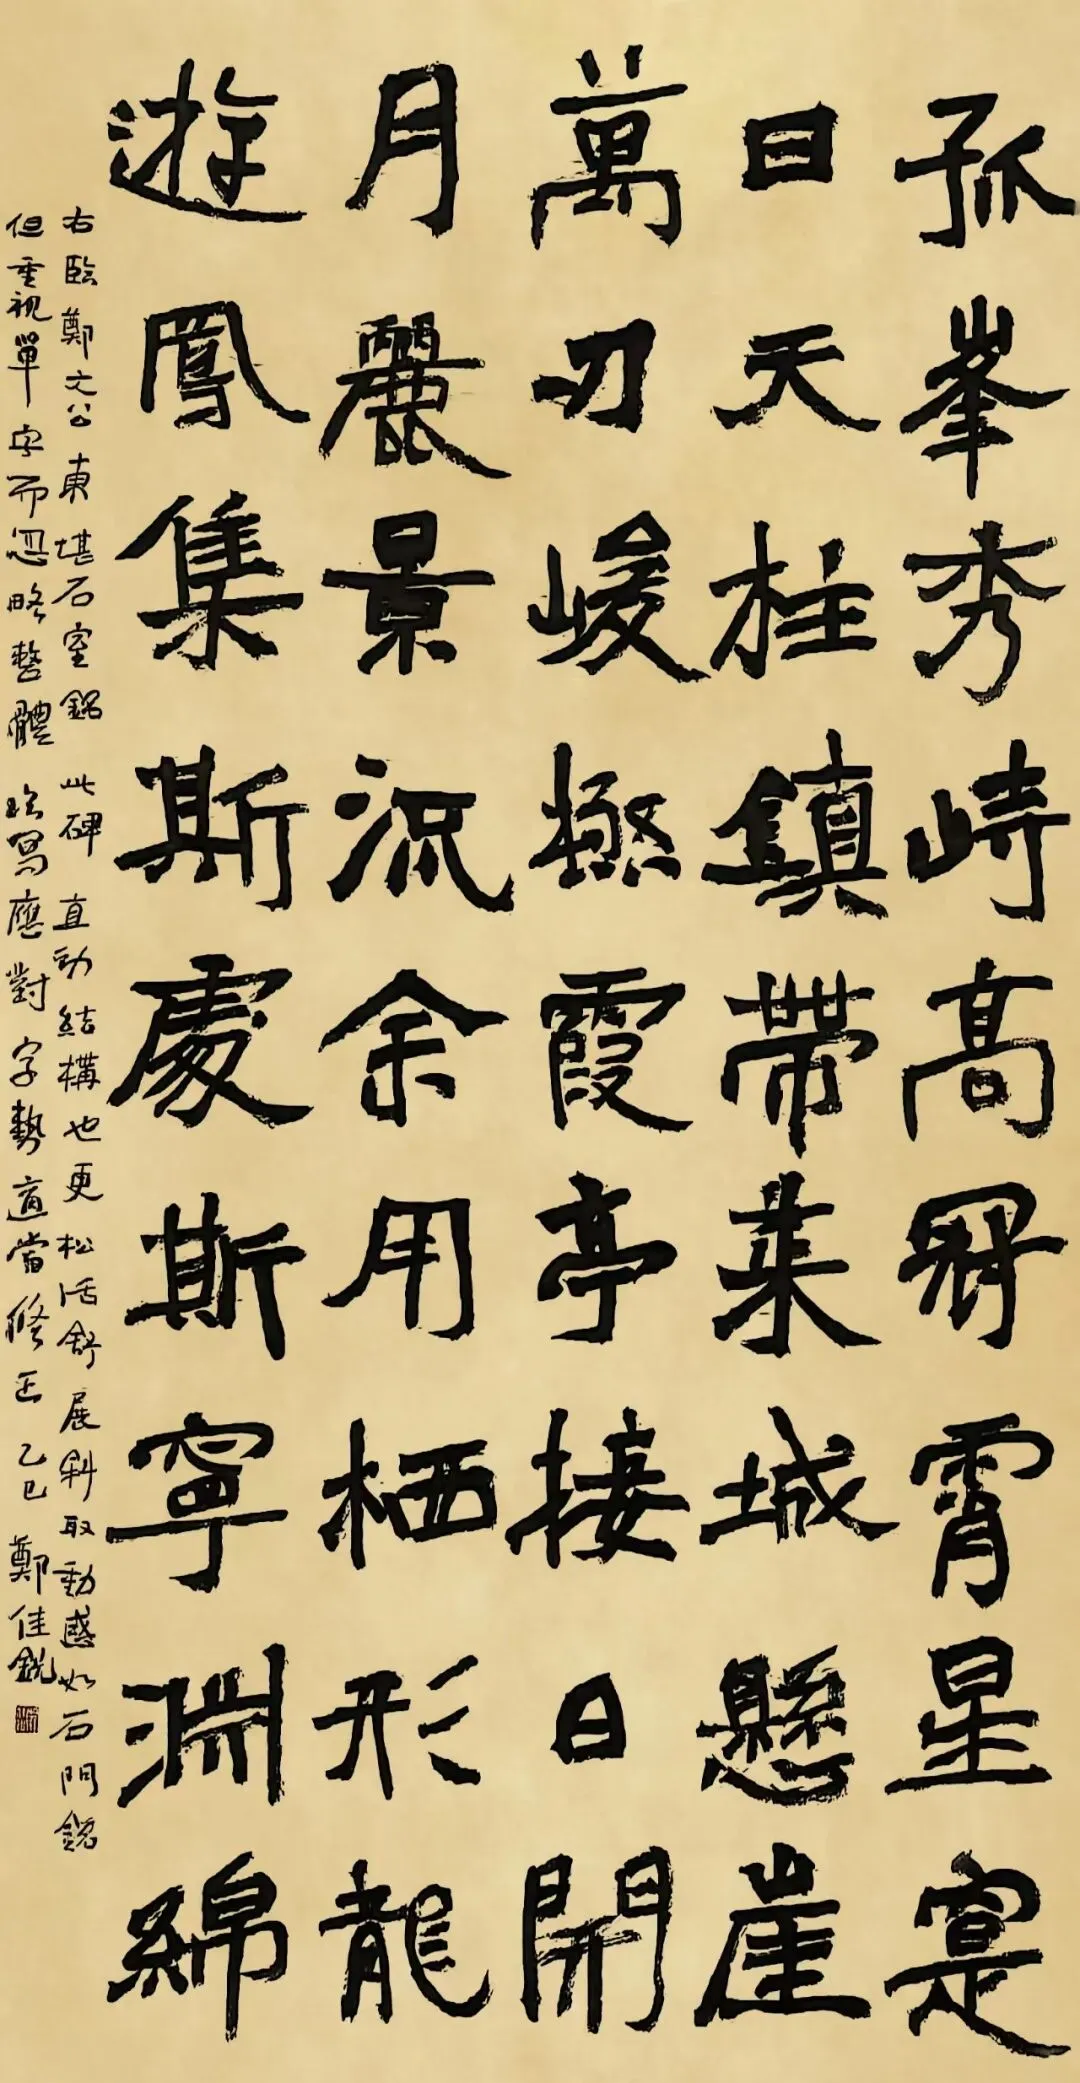 孤峯秀峙高冠霄星寔
曰天柱鎮帶萊城懸崖
萬刃峻極霞亭接日開
月麗景流余用栖形龍
遊鳳集斯處斯寧淵綿
右臨鄭文公東堪石室銘 此碑 直勁結構也更松活舒展斜取動感如石門銘
但重視單字而忽略整體 臨寫應對字勢適當修正 乙巳 鄭佳銳